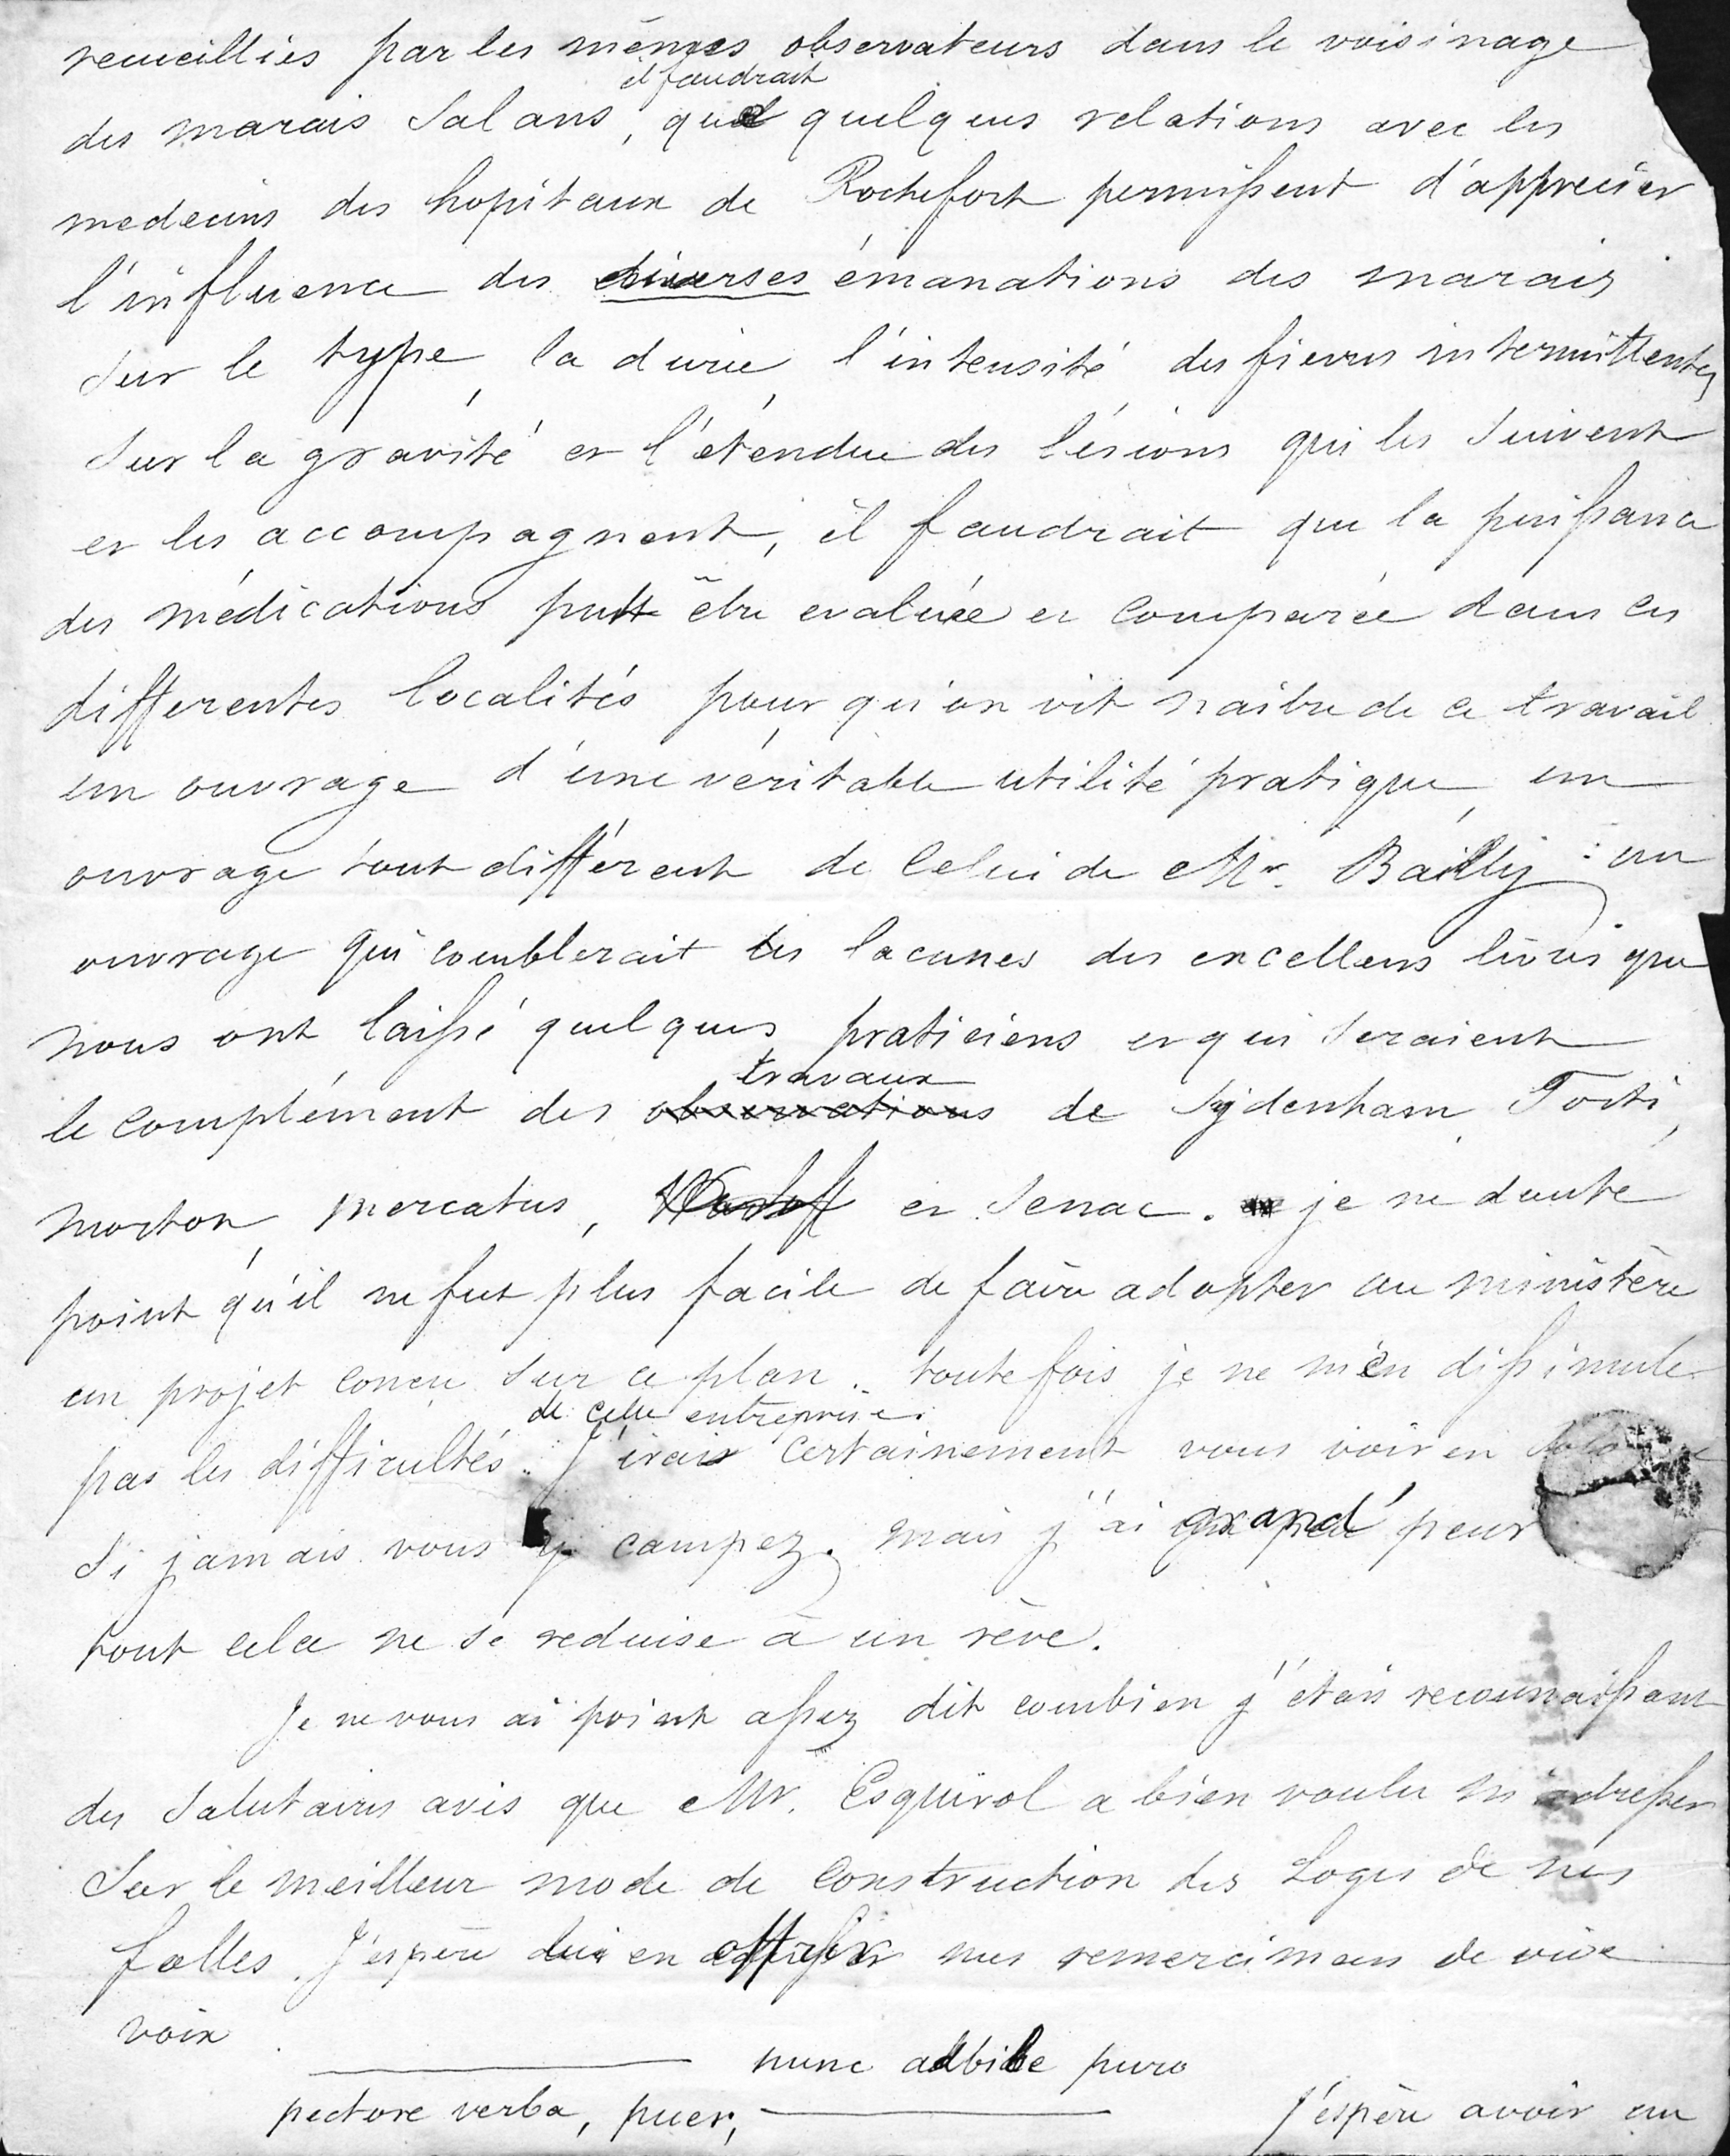 recueillies par les mêmes observateurs dans le voisinage
il faudrait
des marais Salans, que quelques relations avec les
medecins des hopitaux de Rochefort permissent d'apprecier
l'influence des diverses émanations des marais
sur le type, la durée, l'intensité des fievres intermittentes
sur la gravité et l'étendue des lésions qui les suivent
et les accompagnent, il faudrait que la puissance
des médications put être evaluée et comparée dans ces
differentes localités pour qu'on vit naitre de ce travail
un ouvrage d'une véritable utilité pratique, un
ouvrage tout différent de celui de Mr. Bailly : un
ouvrage qui comblerait les lacunes des excellens livres que
nous ont laissé quelques praticiens et qui seraient
travaux
le complément des observations de Sydenham, Torti,
Morton, Mercatus, et Senac. je ne doute
point qu'il ne fut plus facile de faire adopter au ministère
un projet concu sur ce plan. toutefois je ne m'en dissimule
de cette entreprise.
pas les difficultés. J'irais certainement vous voir en
Si jamais vous y campez. mais j'ai grand' peur
tout cela ne se reduise à un rêve.
Je ne vous ai point assez dit combien j'étais reconnaissant
des salutaires avis que Mr. Esquirol a bien voulu m'adresser
sur le meilleur mode de construction des Loges de nos
folles. J'espère lui en offrir mes remercimens de vive
voix.
nunc adbibe puro
pectore verba, puer,
J'espère avoir un